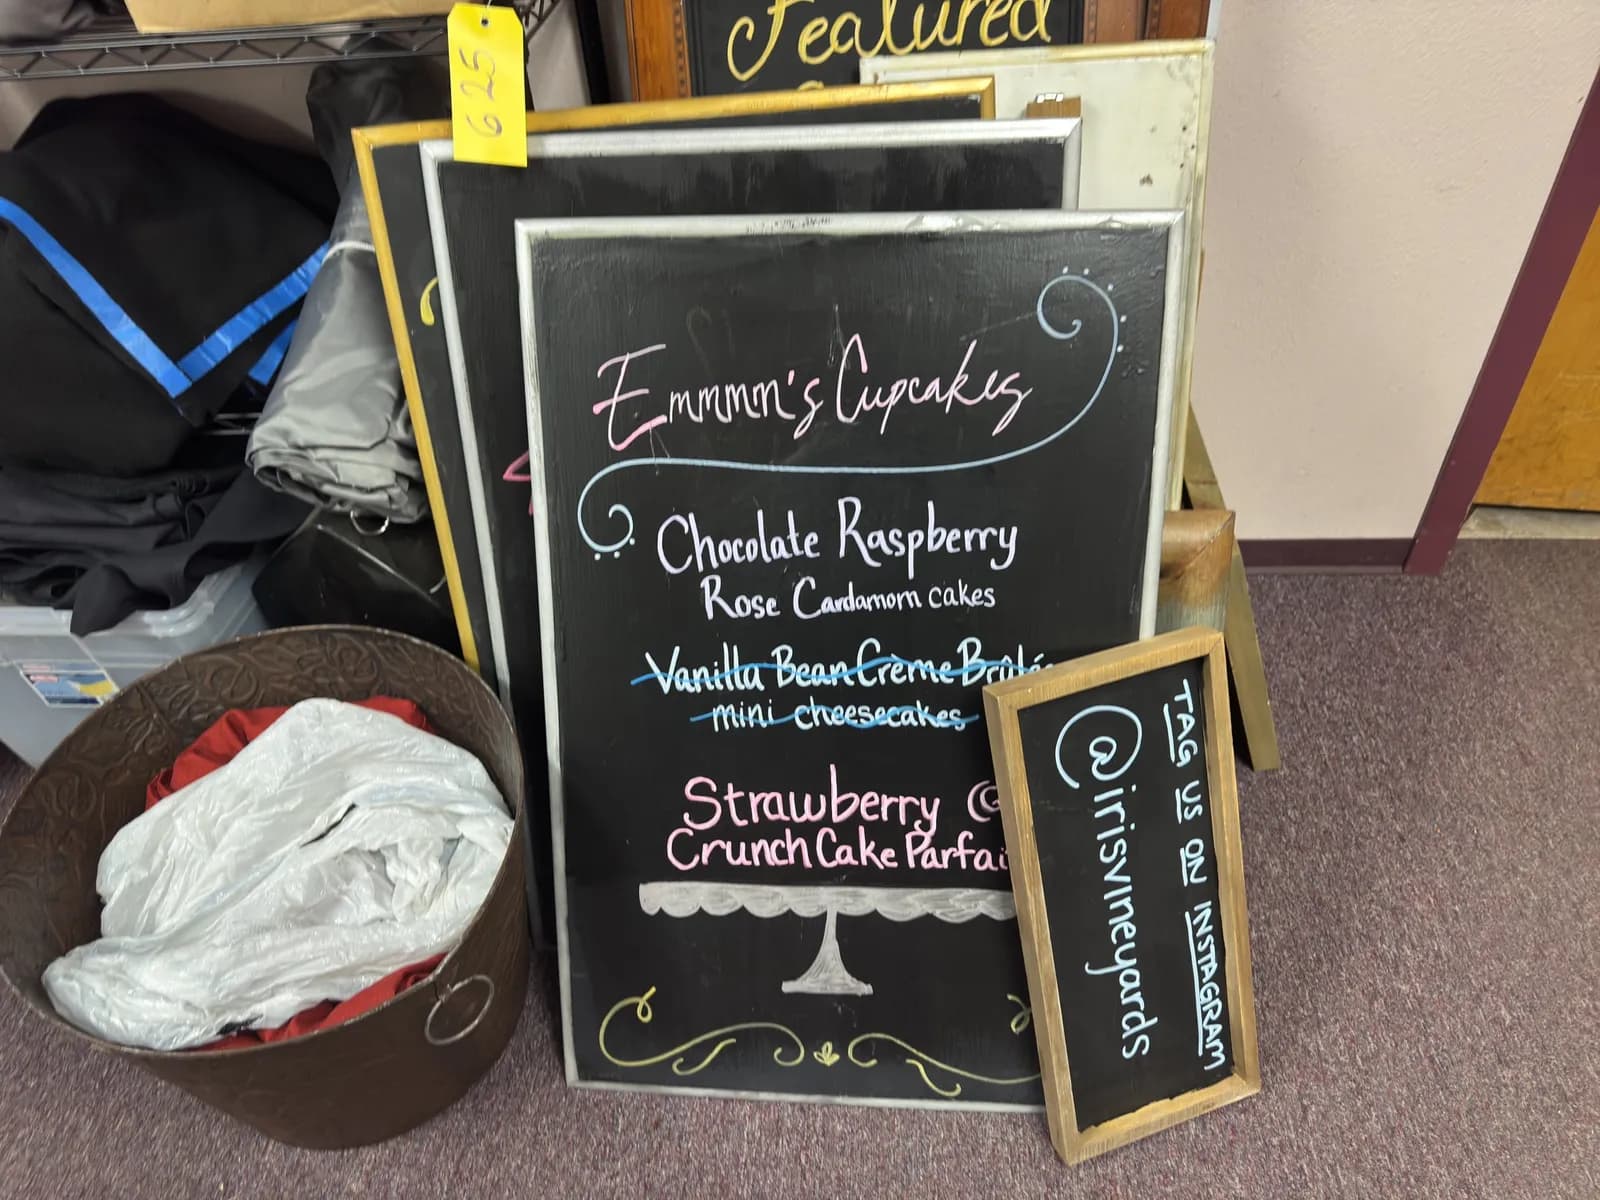 Featured
625
Emmmm's Cupcakes
Chocolate Raspberry
Rose Cardamom cakes
Vanilla Bean Crème Brûlée
mini cheesecakes
Strawberry
Crunch Cake Parfai
TAG US ON INSTAGRAM
@irisvineyards